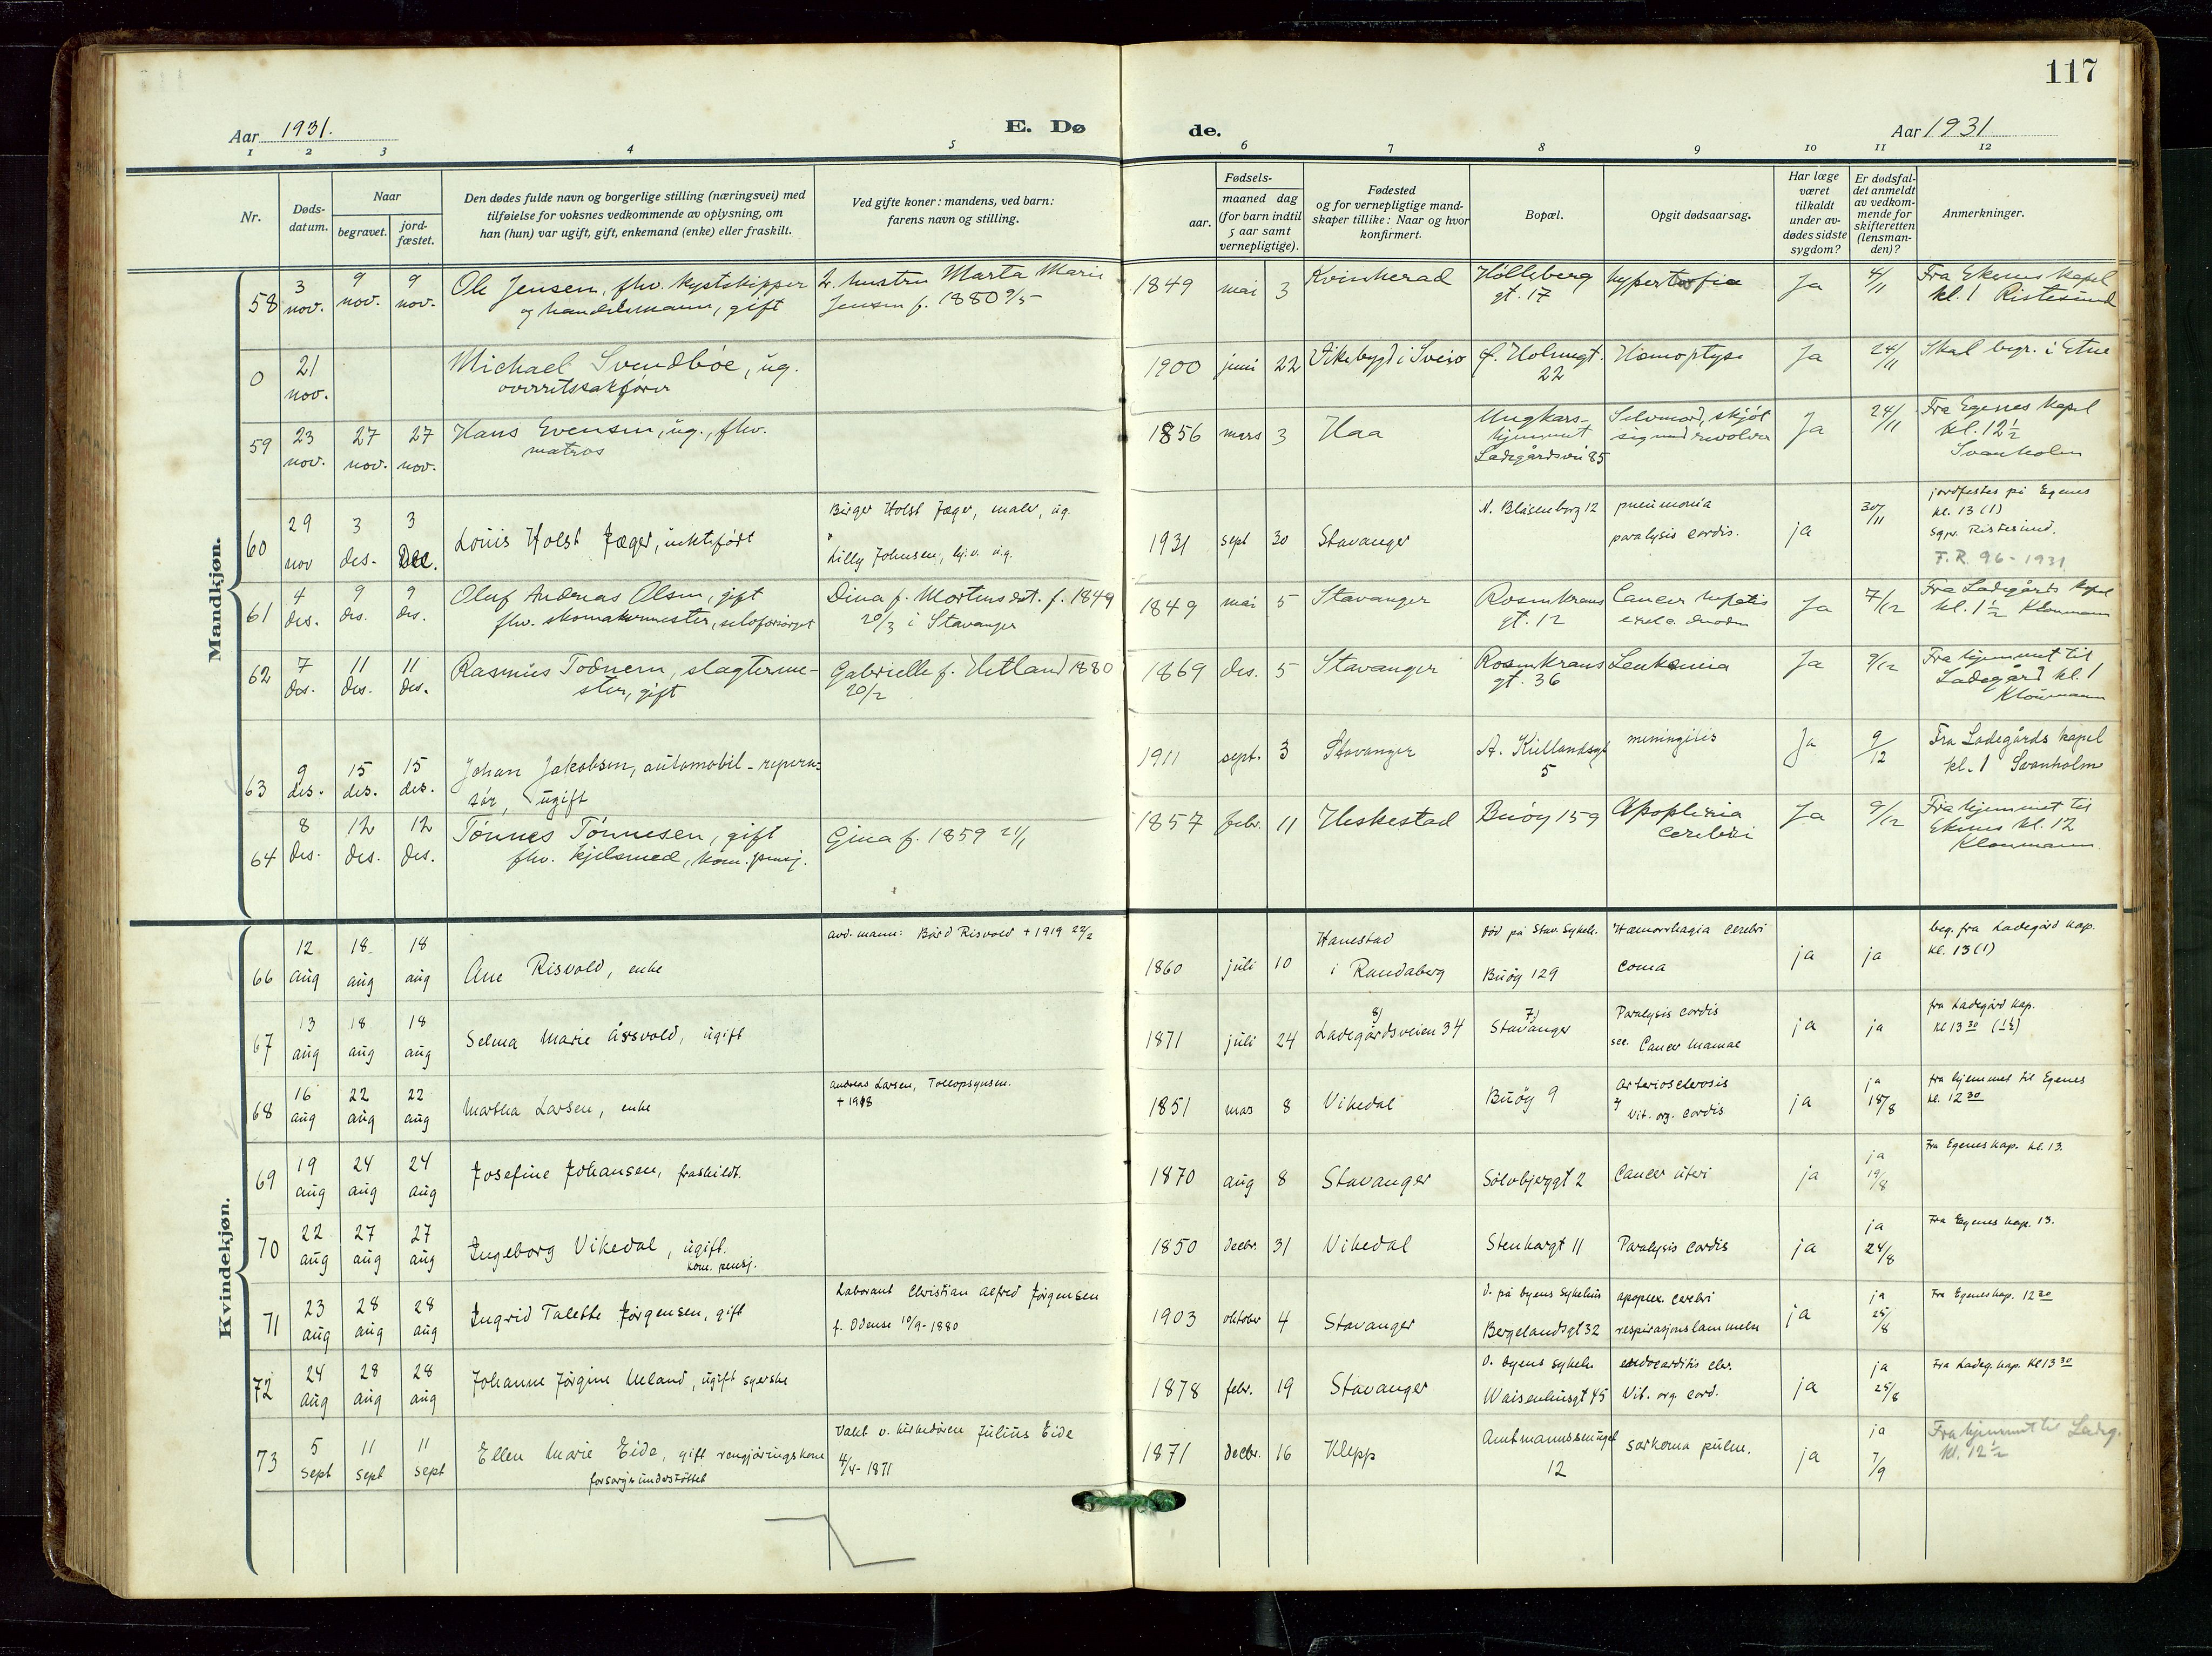 117
Aar 1931.
E. Dø
de.
Aar 1931
1 2 3 4 5 6 7 8 9 10 11 12
Nr.
Døds-
datum.
Naar
begravet.
jord-
fæstet.
Den dødes fulde navn og borgerlige stilling (næringsvei) med
tilføielse for voksnes vedkommende av oplysning, om
han (hun) var ugift, gift, enkemand (enke) eller fraskilt.
Ved gifte koner: mandens, ved barn:
farens navn og stilling.
Fødsels-
aar.
maaned dag
(for barn indtil
5 aar samt
vernepligtige).
Fødested
og for vernepligtige mand-
skaper tillike: Naar og hvor
konfirmert.
Bopæl.
Opgit dødsaarsag.
Har læge
været
tilkaldt
under av-
dødes sidste
sygdom?
Er dødsfal-
det anmeldt
av vedkom-
mende for
skifteretten
(lensman-
den)?
Anmerkninger.
Mandkjøn.
58
3
nov.
9
nov.
9
nov.
Ole Jensen, fhv. kystskipper
og handelsmann, gift
2. hustru Marta Marie
Jensen f. 1880 9/5
1849 mai 3
Kvinherad
Holleberg
gt. 17
hypertrofia
Ja
4/11
Fra Ekenes kapel
kl. 1 Ristesund
0
21
nov.
Michael Svendbøe, ug.
overretssakfører
1900 juni 22
Vikebygd i Sveio
Ø. Holmegt.
22
Hæmoptyse
Ja
24/11
Skal begr. i Etne
59
23
nov.
27
nov.
27
nov.
Hans Evensen, ug., fhv.
matros
1856 mars 3
Haa
Ungkars-
hjemmet
Ladegårdsvei 85
Selvmord, skjøt
sig med revolver
Ja
24/11
Fra Egenes kapel
kl. 12½
Svanholm
60
29
nov
3
des.
3
Dec.
Louis Holst Jæger, uekte født
Birger Holst Jæger, maler, ug.
Lilly Johnsen, hj.v. ug.
1931 sept 30
Stavanger
N. Blåsenborg 12
pneumonia
paralysis cordis.
ja
30/11
jordfestes på Egenes
kl. 13 (1)
sgpr. Ristesund.
F.R. 96-1931
61
4
des.
9
des.
9
des.
Oluf Andreas Olsen, gift
fhv. skomakermester, selvforsørget
Dina f. Mortensdt. f. 1849
20/3 i Stavanger
1849 mai 5
Stavanger
Rosenkrans
gt. 12
Cancer hepatis
Ja
7/12
Fra Ladegårds kapel
kl. 1½ Kloumann
62
7
des.
11
des.
11
des.
Rasmus Todnem, slagterme-
ster, gift
Gabrielle f. Hetland 1880
20/2
1869 des. 5
Stavanger
Rosenkrans
gt. 36
Leukemia
Ja
9/12
Fra hjemmet til
Ladegård kl. 1
Kloumann
63
9
des.
15
des.
15
des.
Johan Jakobsen, automobil-repera-
tør, ugift
1911 sept. 3
Stavanger
A. Kiellandsgt
5
meningitis
Ja
9/12
Fra Ladegårds kapel
kl. 1 Svanholm
64
8
des.
12
des.
12
des.
Tønnes Tønnesen, gift
fhv. kjelsmed, kom. pensj.
Gina f. 1859 21/1
1857 febr. 11
Heskestad
Buøy 159
Apoplexia
cerebri
Ja
9/12
Fra hjemmet til
Ekenes kl. 12
Kloumann
Kvindekjøn.
66
12
aug
18
aug
18
aug
Ane Risvold, enke
avd. mann: Bård Risvold + 1919 22/2
1860 juli 10
Hanestad
i Randaberg
død på Stav. Sykeh.
Buøy 129
Hæmorrhagia cerebri
coma
ja
ja
beg. fra Ladegård kap.
kl. 13 (1)
67
13
aug
18
aug
18
aug
Selma Marie Årsvold, ugift
1871 juli 24
8)
Ladegårdsveien 34
7)
Stavanger
Paralysis cordis
sec. Cancer mamae
ja
ja
fra Ladegård kap.
kl 13 30 (1½)
68
16
aug
22
aug
22
aug
Martha Larsen, enke
Andreas Larsen, Tollopsynsm.
+ 1918
1851 mars 8
Vikedal
Buøy 9
Arteriosclerosis
Vit. org. cordis
ja
ja
18/8
fra hjemmet til Egenes
kl. 12 30
69
19
aug
24
aug
24
aug
Josefine Johansen, fraskildt.
1870 aug 8
Stavanger
Sølvbjerggt 2
Cancer uteri
ja
ja
19/8
Fra Egenes kap. kl. 13.
70
22
aug
27
aug
27
aug
Ingeborg Vikedal, ugift.
kom. pensj.
1850 decbr. 31
Vikedal
Stenhargt 11
Paralysis cordis
ja
ja
24/8
Fra Egenes kap. 13.
71
23
aug
28
aug
28
aug
Ingrid Talette Jørgensen, gift
Laborant Christian Alfred Jørgensen
f. Odense 10/9-1880
1903 oktober 4
Stavanger
D. på byens sykehus
Bergelandsgt 32
apoplex. cerebri
respirasjonslammelse
ja
ja
25/8
Fra Egenes kap. 12 30
72
24
aug
28
aug
28
aug
Johanne Jørgine Meland, ugift syerske
1878 febr. 19
Stavanger
D. byens sykeh.
Waisenhusgt 45
endocarditis chr.
Vit. org. cord.
ja
ja
25/8
Fra Ladeg. kap. kl 13 30
73
5
sept
11
sept
11
sept
Ellen Marie Eide, gift rengjøringskone
forsorgsunderstøttet
Vakt v. kirkedøren Julius Eide
4/4-1871
1871 decbr. 16
Klepp
Amtmannssmuget
12
sarkoma pulm.
ja
ja
7/9
Fra hjemmet til Ladeg.
kl. 12½